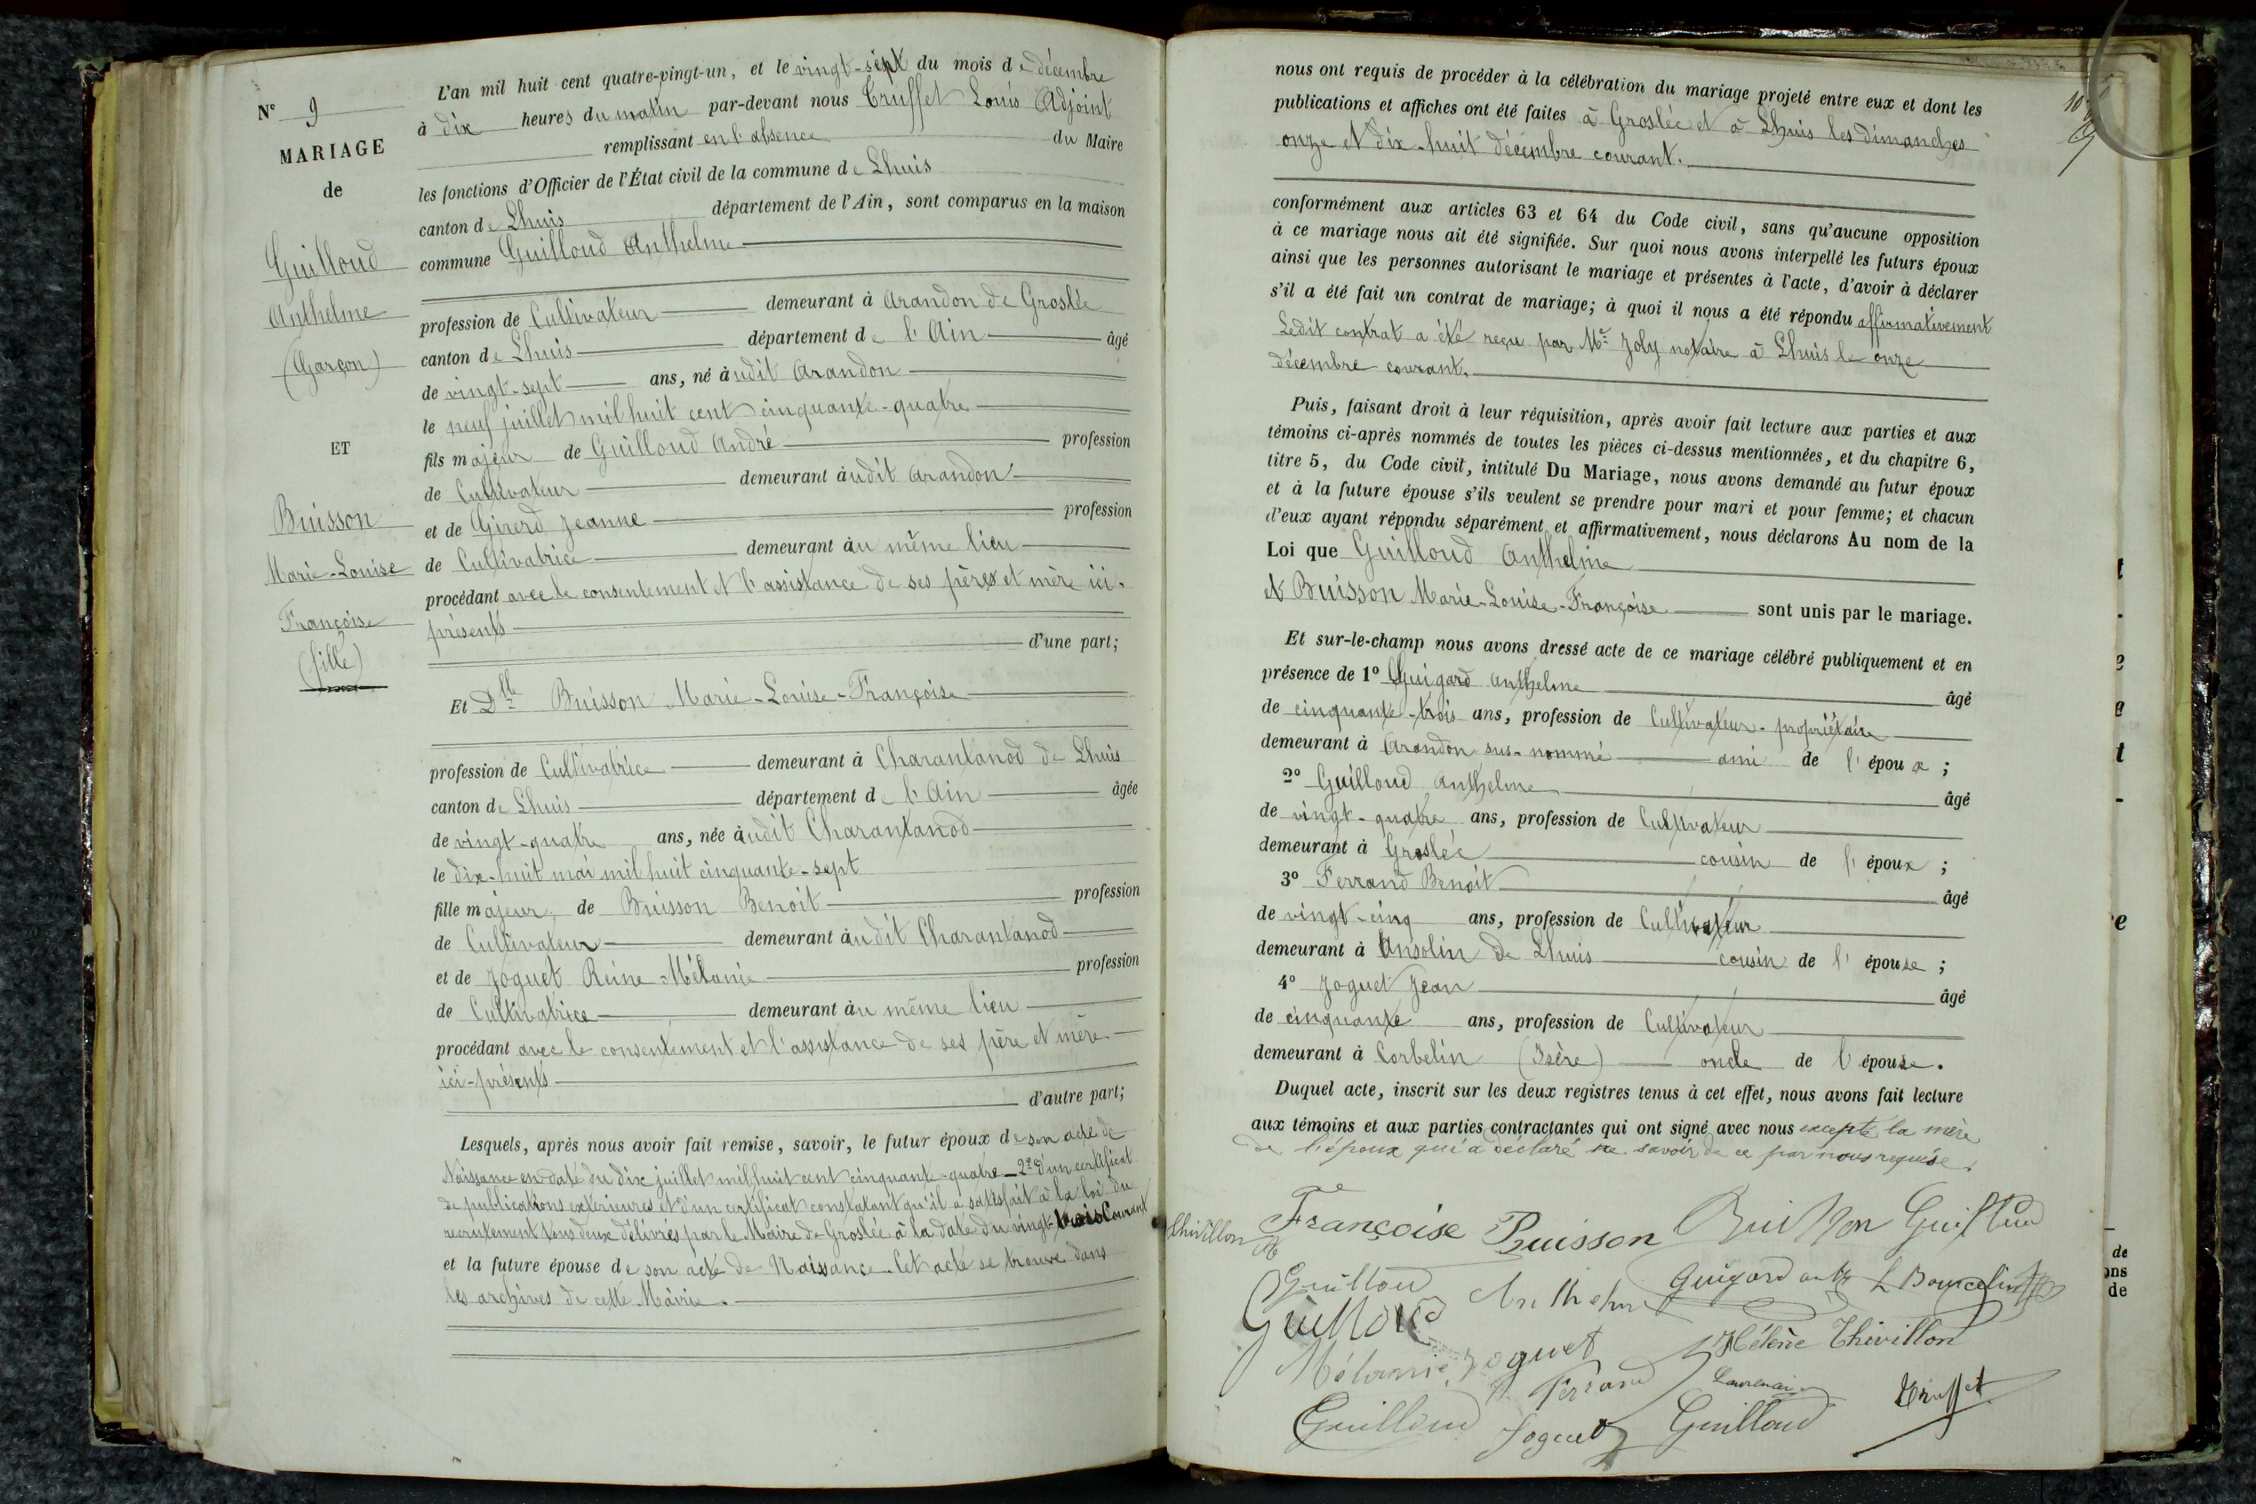 N° 9
MARIAGE
de
Guilloud
Anthelme
(Garçon)
ET
Buisson
Marie-Louise
Françoise
(fille)
L'an mil huit cent quatre-vingt-un, et le vingt-sept du mois de décembre
à dix heures du matin par-devant nous Truffet Louis Adjoint
remplissant en l'absence du Maire
les fonctions d'Officier de l'État civil de la commune de Lhuis
canton de Lhuis département de l'Ain, sont comparus en la maison
commune Guilloud Anthelme
profession de Cultivateur demeurant à Arandon de Groslée
canton de Lhuis département de l'Ain âgé
de vingt-sept ans, né àudit Arandon
le neuf juillet mil huit cent cinquante-quatre
fils majeur de Guilloud André profession
de Cultivateur demeurant àudit Arandon
et de Girerd Jeanne profession
de Cultivatrice demeurant àu même lieu
procédant avec le consentement et l'assistance de ses pères et mère ici-
présents
d'une part;
Et Dlle Buisson Marie-Louise-Françoise
profession de Cultivatrice demeurant à Charantanod de Lhuis
canton de Lhuis département de l'Ain âgée
de vingt-quatre ans, née àudit Charantanod
le dix-huit mai mil huit cinquante-sept
fille majeure de Buisson Benoit profession
de Cultivateur demeurant àudit Charantanod
et de Joguet Reine-Mélanie profession
de Cultivatrice demeurant àu même lieu
procédant avec le consentement et l'assistance de ses père et mère
ici-présents
d'autre part;
Lesquels, après nous avoir fait remise, savoir, le futur époux de son acte de
Naissance en date du dix juillet mil huit cent cinquante-quatre - 2° d'un certificat
de publications extérieures et d'un certificat constatant qu'il a satisfait à la loi du
recrutement tous deux délivrés par le Maire de Groslée à la date du vingt-trois Courant
et la future épouse de son acte de Naissance. Cet acte se trouve dans
les archives de cette Mairie.
nous ont requis de procéder à la célébration du mariage projeté entre eux et dont les
publications et affiches ont été faites à Groslée et à Lhuis les dimanches
onze et dix-huit décembre courant.
conformément aux articles 63 et 64 du Code civil, sans qu'aucune opposition
à ce mariage nous ait été signifiée. Sur quoi nous avons interpellé les futurs époux
ainsi que les personnes autorisant le mariage et présentes à l'acte, d'avoir à déclarer
s'il a été fait un contrat de mariage; à quoi il nous a été répondu affirmativement
Ledit contrat a été reçu par Me Joly notaire à Lhuis le onze
décembre courant.
Puis, faisant droit à leur réquisition, après avoir fait lecture aux parties et aux
témoins ci-après nommés de toutes les pièces ci-dessus mentionnées, et du chapitre 6,
titre 5, du Code civil, intitulé Du Mariage, nous avons demandé au futur époux
et à la future épouse s'ils veulent se prendre pour mari et pour femme; et chacun
d'eux ayant répondu séparément et affirmativement, nous déclarons Au nom de la
Loi que Guilloud Anthelme
et Buisson Marie-Louise-Françoise sont unis par le mariage.
Et sur-le-champ nous avons dressé acte de ce mariage célébré publiquement et en
présence de 1° Guigard Anthelme âgé
de cinquante-trois ans, profession de Cultivateur-propriétaire
demeurant à Arandon sus-nommé ami de l'époux;
2° Guilloud Anthelme âgé
de vingt-quatre ans, profession de Cultivateur
demeurant à Groslée cousin de l'époux;
3° Ferrand Benoit âgé
de vingt-cinq ans, profession de Cultivateur
demeurant à Ansolin de Lhuis cousin de l'épouse;
4° Joguet Jean âgé
de cinquante ans, profession de Cultivateur
demeurant à Corbelin (Isère) oncle de l'épouse.
Duquel acte, inscrit sur les deux registres tenus à cet effet, nous avons fait lecture
aux témoins et aux parties contractantes qui ont signé avec nous excepté la mère
de l'époux qui a déclaré ne savoir de ce par nous requise.
Thivillon Françoise Buisson Buisson Guilloud
Guilloud Anthelme Guigard anth
Guilloud
Mélanie Joguet Hélène Thivillon
Ferrand Truffet
Guilloud Joguet Guilloud